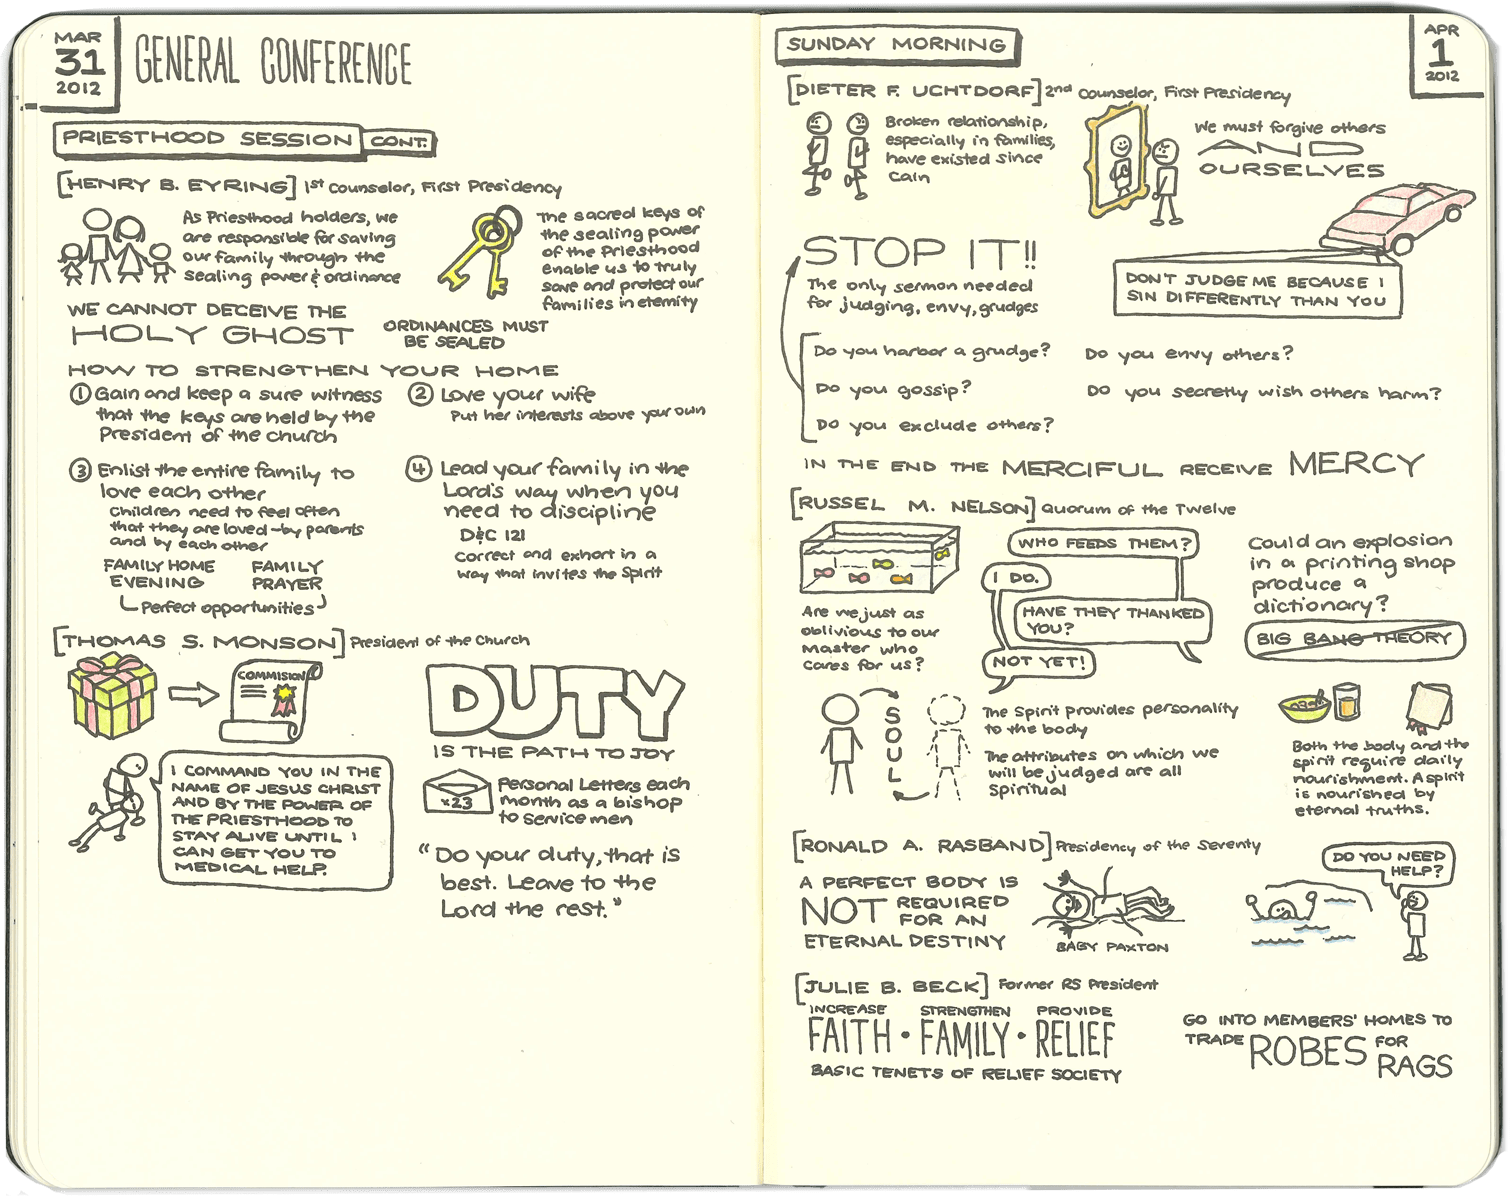 MAR
31
2012
GENERAL CONFERENCE
PRIESTHOOD SESSION CONT.
[HENRY B. EYRING] 1st Counselor, First Presidency
As Priesthood holders, we
are responsible for saving
our family through the
sealing power & ordinance
The sacred keys of
the sealing power
of the Priesthood
enable us to truly
save and protect our
families in eternity
WE CANNOT DECEIVE THE
HOLY GHOST
ORDINANCES MUST
BE SEALED
HOW TO STRENGTHEN YOUR HOME
1 Gain and keep a sure witness
that the keys are held by the
President of the church
2 Love your wife
Put her interests above your own
3 Enlist the entire family to
love each other
Children need to feel often
that they are loved - by parents
and by each other
FAMILY HOME
EVENING
FAMILY
PRAYER
Perfect opportunities
4 Lead your family in the
Lord's way when you
need to discipline
D&C 121
Correct and exhort in a
way that invites the Spirit
[THOMAS S. MONSON] President of the Church
COMMISION
DUTY
IS THE PATH TO JOY
I COMMAND YOU IN THE
NAME OF JESUS CHRIST
AND BY THE POWER OF
THE PRIESTHOOD TO
STAY ALIVE UNTIL I
CAN GET YOU TO
MEDICAL HELP.
x23
Personal Letters each
month as a bishop
to service men
"Do your duty, that is
best. Leave to the
Lord the rest."
SUNDAY MORNING
APR
1
2012
[DIETER F. UCHTDORF] 2nd Counselor, First Presidency
Broken relationship,
especially in families,
have existed since
Cain
We must forgive others
AND
OURSELVES
STOP IT!!
The only sermon needed
for judging, envy, grudges
DON'T JUDGE ME BECAUSE I
SIN DIFFERENTLY THAN YOU
Do you harbor a grudge?
Do you envy others?
Do you gossip?
Do you secretly wish others harm?
Do you exclude others?
IN THE END THE MERCIFUL RECEIVE MERCY
[RUSSEL M. NELSON] Quorum of the Twelve
Are we just as
oblivious to our
Master who
cares for us?
WHO FEEDS THEM?
I DO.
HAVE THEY THANKED
YOU?
NOT YET!
Could an explosion
in a printing shop
produce a
dictionary?
BIG BANG THEORY
SOUL
The Spirit provides personality
to the body
The attributes on which we
will be judged are all
Spiritual
Both the body and the
spirit require daily
nourishment. A spirit
is nourished by
eternal truths.
[RONALD A. RASBAND] Presidency of the Seventy
A PERFECT BODY IS
NOT REQUIRED
FOR AN
ETERNAL DESTINY
BABY PAXTON
DO YOU NEED
HELP?
[JULIE B. BECK] Former RS President
INCREASE STRENGTHEN PROVIDE
FAITH • FAMILY • RELIEF
BASIC TENETS OF RELIEF SOCIETY
GO INTO MEMBERS' HOMES TO
TRADE ROBES FOR
RAGS